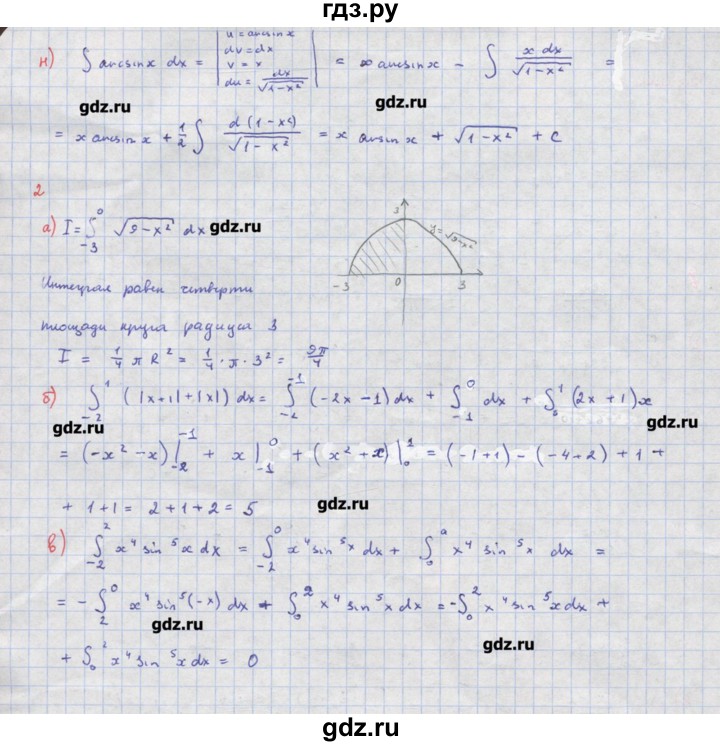 гдз.ру
н) ∫ arcsin x dx = | u = arcsin x
dv = dx
v = x
du = dx/√(1-x²) | = x arcsin x - ∫ x dx/√(1-x²) =
gdz.ru gdz.ru
= x arcsin x + 1/2 ∫ d(1-x²)/√(1-x²) = x arcsin x + √(1-x²) + C
2
а) I = ∫₋₃⁰ √(9-x²) dx gdz.ru
3 y=√(9-x²)
-3 0 3
Интеграл равен четверти
площади круга радиуса 3
I = 1/4 π R² = 1/4 · π · 3² = 9π/4
б) ∫₋₂¹ (|x+1|+|x|) dx = ∫₋₂⁻¹ (-2x-1) dx + ∫₋₁⁰ dx + ∫₀¹ (2x+1)x
gdz.ru gdz.ru
= (-x²-x)|₋₂⁻¹ + x|₋₁⁰ + (x²+x)|₀¹ = (-1+1) - (-4+2) + 1 +
+ 1+1 = 2+1+2 = 5 gdz.ru
в) ∫₋₂² x⁴ sin⁵x dx = ∫₋₂⁰ x⁴ sin⁵x dx + ∫₀ᵃ x⁴ sin⁵x dx =
= - ∫₂⁰ x⁴ sin⁵(-x) dx + ∫₀² x⁴ sin⁵x dx = - ∫₀² x⁴ sin⁵x dx +
gdz.ru gdz.ru
+ ∫₀² x⁴ sin⁵x dx = 0
gdz.ru